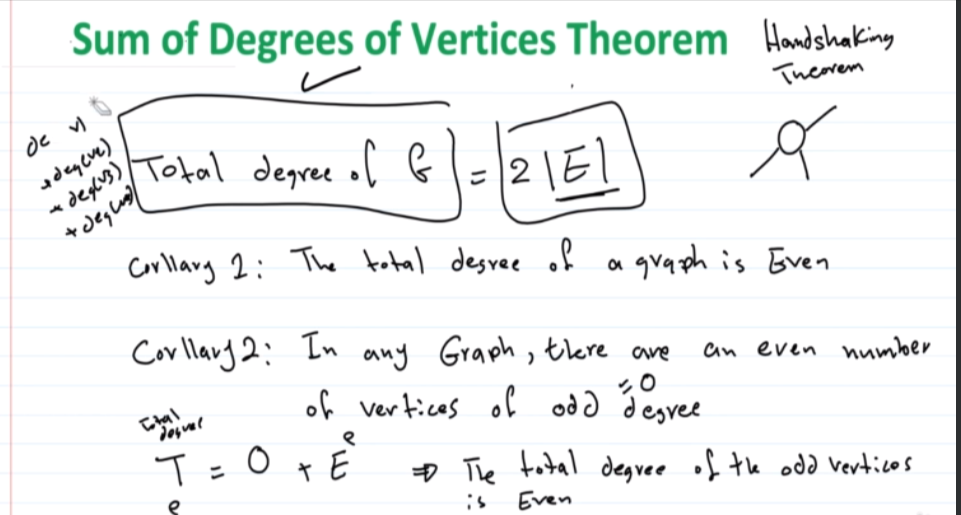 Sum of Degrees of Vertices Theorem
Handshaking
Theorem
+deg(v2)
+ deg(v3)
Total degree of G = 2 |E|
Corllary 1: The total degree of a graph is Even
Corllary 2: In any Graph, there are an even number
of vertices of odd degree
= 0
Total
degree
T = O + E
e
e
⇒ The total degree of the odd vertices
is Even